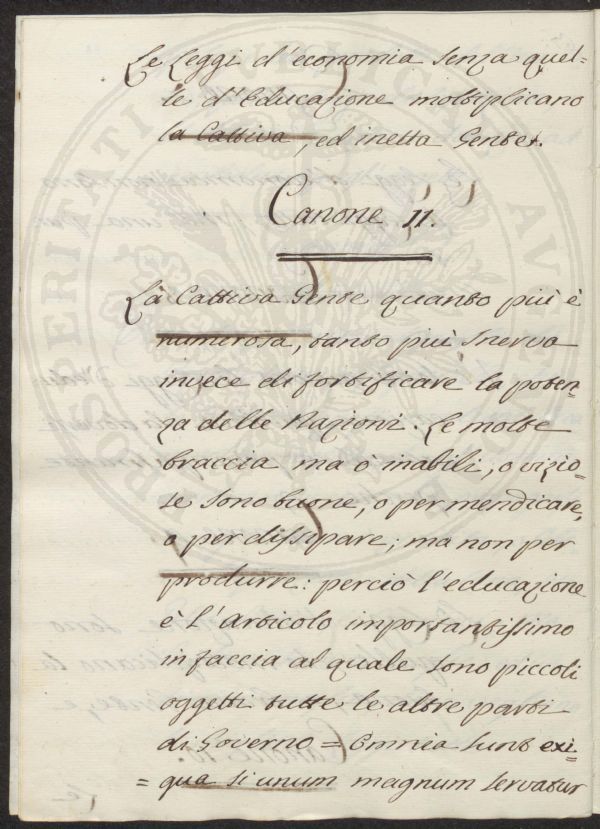 Le Leggi d'economia senza quel=
le d'Educazione moltiplicano
la Cattiva, ed inetta Gente.
Canone 11.
La Cattiva Gente quanto più è
numerosa, tanto più snerva
invece di fortificare la poten=
za delle Nazioni. Le molte
braccia ma o inabili, o vizio=
se sono buone, o per mendicare,
o per dissipare; ma non per
produrre: perciò l'educazione
è l'Articolo importantissimo
in faccia al quale sono piccoli
oggetti tutte le altre parti
di Governo = Omnia sunt exi=
= qua si unum magnum servatur